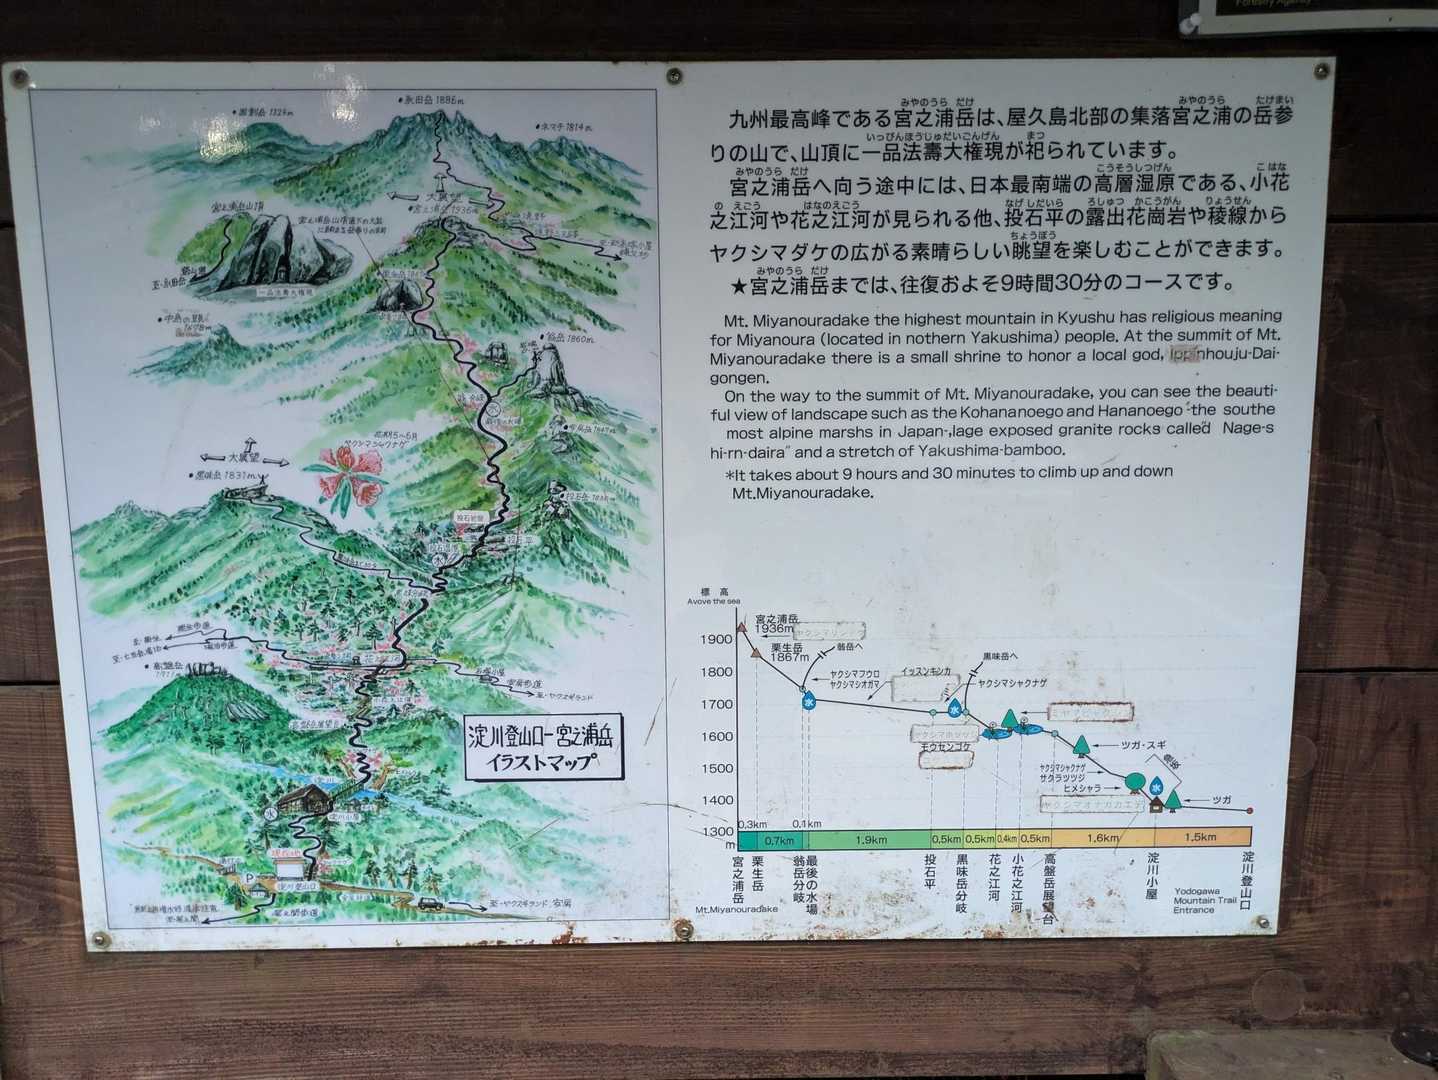 Forestry Agency
黒味岳 1831m
永田岳 1886m
ネマチ 1814m
大展望
宮之浦岳 1936m
宮之浦岳山頂
一品法壽大権現
翁岳 1860m
花期5~6月
ヤクシマシャクナゲ
大展望
投石平
淀川登山口ー宮之浦岳
イラストマップ
水
淀川小屋
P
淀川登山口
九州最高峰である宮之浦岳は、屋久島北部の集落宮之浦の岳参
りの山で、山頂に一品法壽大権現が祀られています。
宮之浦岳へ向う途中には、日本最南端の高層湿原である、小花
之江河や花之江河が見られる他、投石平の露出花崗岩や稜線から
ヤクシマダケの広がる素晴らしい眺望を楽しむことができます。
★宮之浦岳までは、往復およそ9時間30分のコースです。
Mt. Miyanouradake the highest mountain in Kyushu has religious meaning
for Miyanoura (located in nothern Yakushima) people. At the summit of Mt.
Miyanouradake there is a small shrine to honor a local god, Ippinhouju-Dai-
gongen.
On the way to the summit of Mt. Miyanouradake, you can see the beauti-
ful view of landscape such as the Kohananoego and Hananoego-the southe
most alpine marshs in Japan-,lage exposed granite rocks called Nage-s
hi-rn-daira" and a stretch of Yakushima-bamboo.
*It takes about 9 hours and 30 minutes to climb up and down
Mt.Miyanouradake.
標 高
Avove the sea
1900
1800
1700
1600
1500
1400
1300
m
宮之浦岳
1936m
栗生岳
1867m
ヤクシマリンドウ
翁岳へ
ヤクシマフウロ
ヤクシマシオガマ
イッスンキンカ
黒味岳へ
ヤクシマシャクナゲ
モウセンゴケ
ツガ・スギ
ヤクシマシャクナゲ
サクラツツジ
ヒメシャラ
ヤクシマオナガカエデ
ツガ
水
水
水
0.3km 0.7km 0.1km 1.9km 0.5km 0.5km 0.4km 0.5km 1.6km 1.5km
宮之浦岳
栗生岳
翁岳分岐
最後の水場
投石平
黒味岳分岐
花之江河
小花之江河
高盤岳展望台
淀川小屋
淀川登山口
Mt.Miyanouradake
Yodogawa
Mountain Trail
Entrance